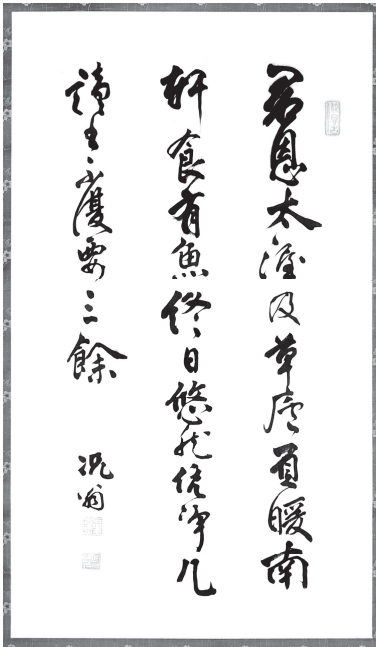 君恩太渥及草廬負暖南
軒食有魚終日悠然倚浄几
讀書不復要三餘
翁